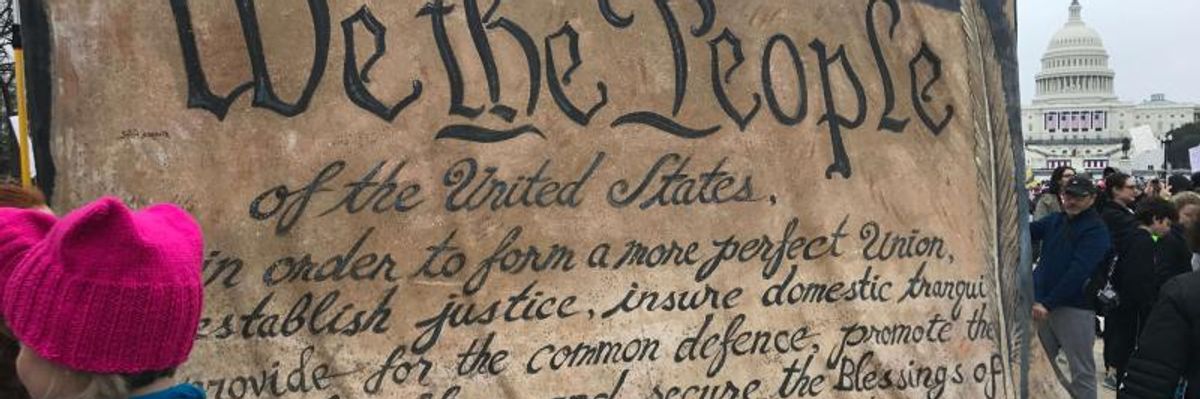 We the People
of the United States.
in order to form a more perfect Union,
establish justice, insure domestic tranqui
provide for the common defence, promote the
and secure the Blessings of